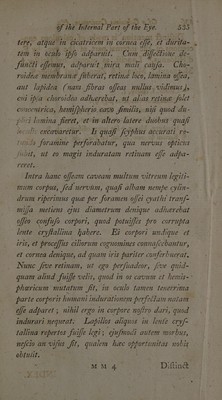 of the Internal Part of the Eye. 535
tere, atque in cicatricem in cornea esse, et durita-
tem in oculo ipso adparuit. Cum dissectione de-
functi essemus, adparuit mira mali causa. Cho-
roideæ membranæ suberat, retinæ loco, lamina ossea,
aut lapidea (nam fibras osseas nullas vidimus),
cui ipsa choroidea adhærebat, ut alias retina solet
concentrica, hemisphærio cavo similis, nisi quod du-
plici lamina fieret, et in altero latere duobus quasi
loculis excavaretur. Is quasi scyphus accurati ro-
tundo foramine perforabatur, qua nervus opticus
subit, ut eo magis induratam retinam esse adpa-
reret.
Intra hanc osseam caveam multum vitreum legiti-
mum corpus, sed nervum, quasi album nempe cylin-
drum riperimus qua per foramen ossei cyathi trans-
missa metiens ejus diametrum denique adhærebat
osseo confuso corpori, quod potuisset pro corrupta
lente crystallina habere. Ei corpori undique et
iris, et processus ciliorum cognomines connascebantur,
et cornea denique, ad quam iris pariter conferbuerat.
Nunc sive retinam, ut ego persuadeor, sive quid-
quam aliud fuisse velis, quod in os cavum et hemis-
phæricum mutatum sit, in oculo tamen tenerrima
parte corporis humani indurationem perfectam natam
esse adparet; nihil ergo in corpore nostro dari, quod
indurari nequeat. Lapillos aliquos in lente crys-
tallina repertos fuisse legi; ejusmodi autem morbus,
nescio an visus sit, qualem hæc opportunitas nobis
obtulit.
M M 4 Distinct